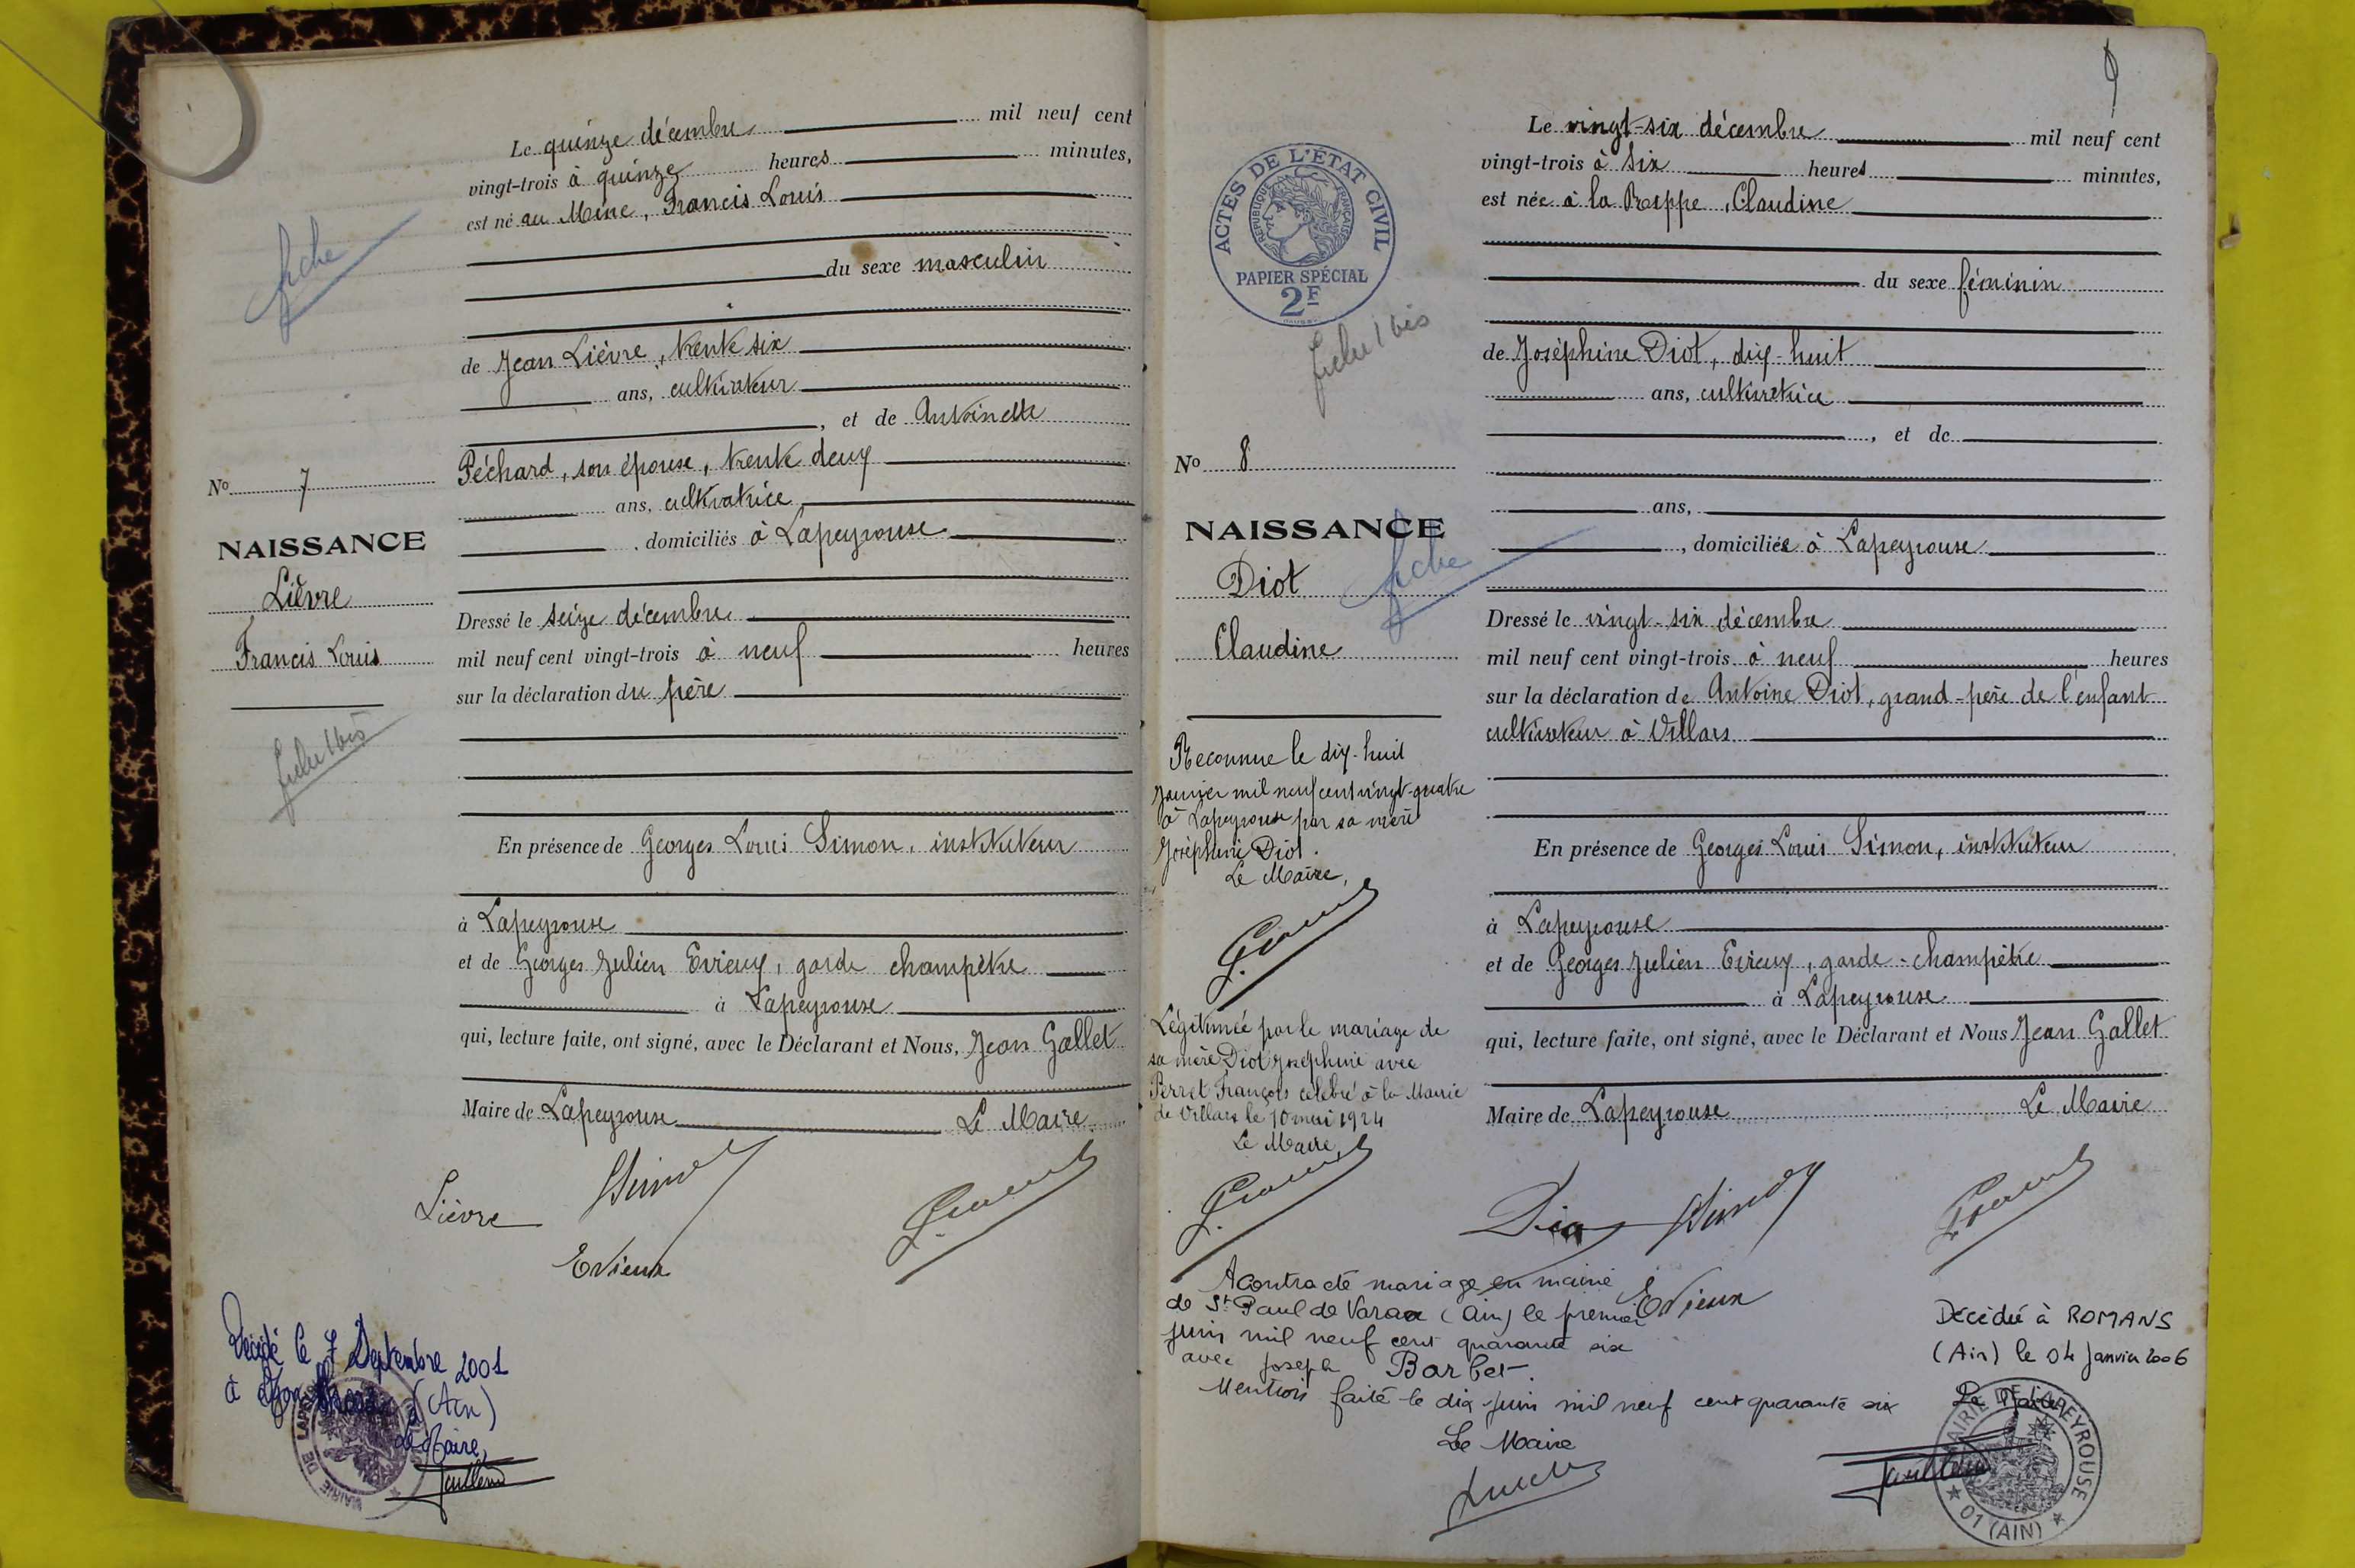 Le quinze décembre mil neuf cent
vingt-trois à quinze heures minutes,
est né au Mine, Francis Louis
du sexe masculin
de Jean Lièvre, trente six
ans, cultivateur
, et de Antoinette
Péchard, son épouse, trente deux
ans, cultivatrice
, domiciliés à Lapeyrouse
Dressé le seize décembre
mil neuf cent vingt-trois à neuf heures
sur la déclaration du père
En présence de Georges Louis Simon, instituteur
à Lapeyrouse
et de Georges Julien Evieux, garde champêtre
à Lapeyrouse
qui, lecture faite, ont signé, avec le Déclarant et Nous, Jean Gallet
Maire de Lapeyrouse Le Maire
Lièvre
Simon
Evieux
fiche
No 7
NAISSANCE
Lièvre
Francis Louis
fiche 1 bis
Décédé le 7 Septembre 2001
à (Ain)
Le Maire,
MAIRIE DE
9
ACTES DE L'ÉTAT CIVIL
RÉPUBLIQUE FRANÇAISE
PAPIER SPÉCIAL
2F
fiche 1 bis
No 8
NAISSANCE
Diot
fiche
Claudine
Reconnue le dix-huit
Janvier mil neuf cent vingt-quatre
à Lapeyrouse par sa mère
Joséphine Diot.
Le Maire,
Légitimée par le mariage de
sa mère Diot Joséphine avec
Perret François célébré à la Mairie
de Villars le 10 mai 1924
Le Maire,
Le vingt-six décembre mil neuf cent
vingt-trois à six heures minutes,
est née à la Reppe, Claudine
du sexe féminin
de Joséphine Diot, dix-huit
ans, cultivatrice
, et de
ans,
, domiciliée à Lapeyrouse
Dressé le vingt-six décembre
mil neuf cent vingt-trois à neuf heures
sur la déclaration de Antoine Diot, grand-père de l'enfant
cultivateur à Villars
En présence de Georges Louis Simon, instituteur
à Lapeyrouse
et de Georges Julien Evieux, garde-champêtre
à Lapeyrouse
qui, lecture faite, ont signé, avec le Déclarant et Nous Jean Gallet
Maire de Lapeyrouse Le Maire
Diot
Simon
Evieux
A contracté mariage en mairie
de St Paul de Varax (Ain) le premier
juin mil neuf cent quarante six
avec Joseph Barbet.
Mention faite le dix juin mil neuf cent quarante six
Le Maire
Décédée à ROMANS
(Ain) le 04 Janvier 2006
Le Maire
MAIRIE DE LAPEYROUSE
01 (AIN)